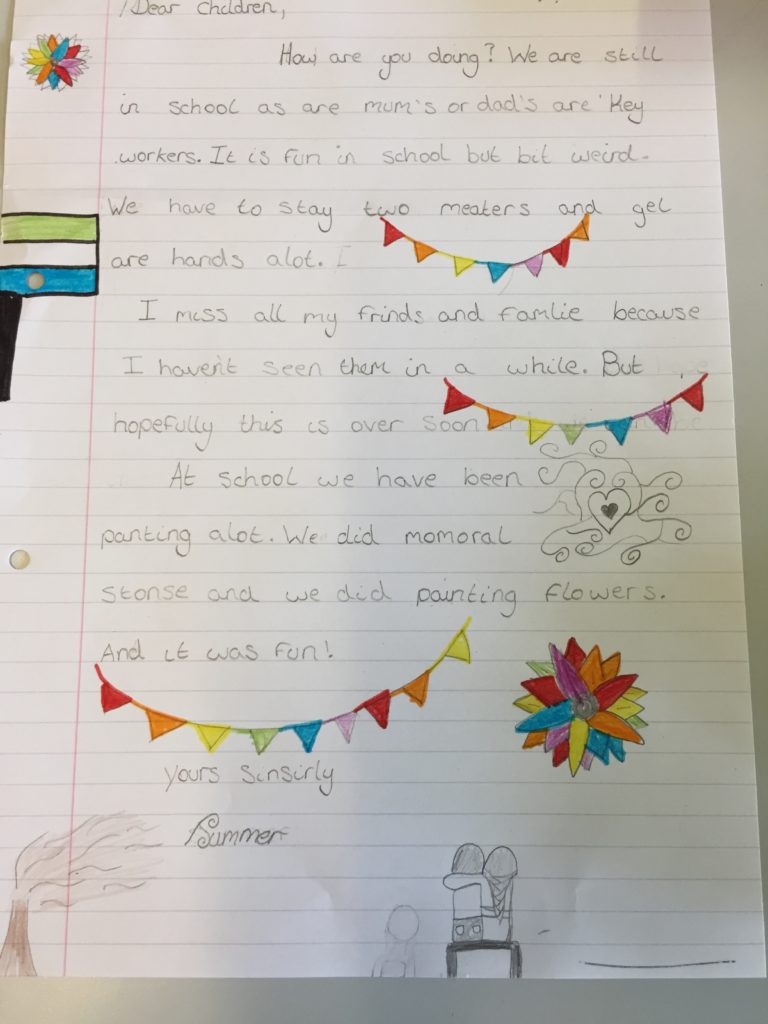 Dear Children,
How are you doing? We are still
in school as are mum's or dad's are Key
workers. It is fun in school but bit weird.
We have to stay two meaters and gel
are hands alot. I
I miss all my frinds and famlie because
I haven't seen them in a while. But
hopefully this is over soon
At school we have been
panting alot. We did momoral
stonse and we did painting flowers.
And it was fun!
yours sinsirly
Summer